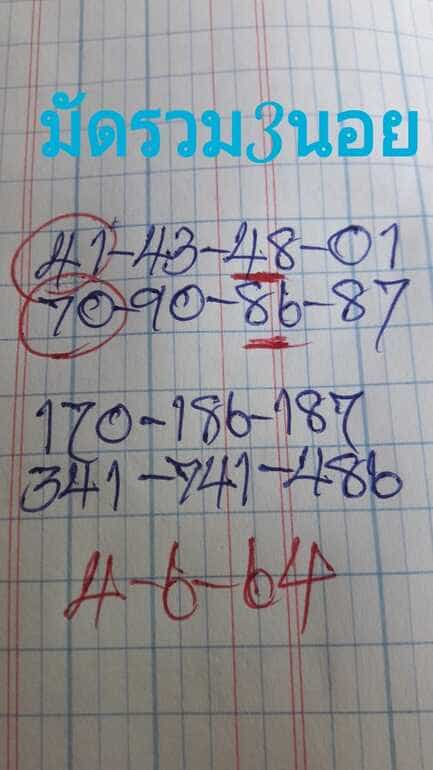 มัดรวม3นอย
41-43-48-01
70-90-86-87
170-186-187
341-741-486
4-6-64